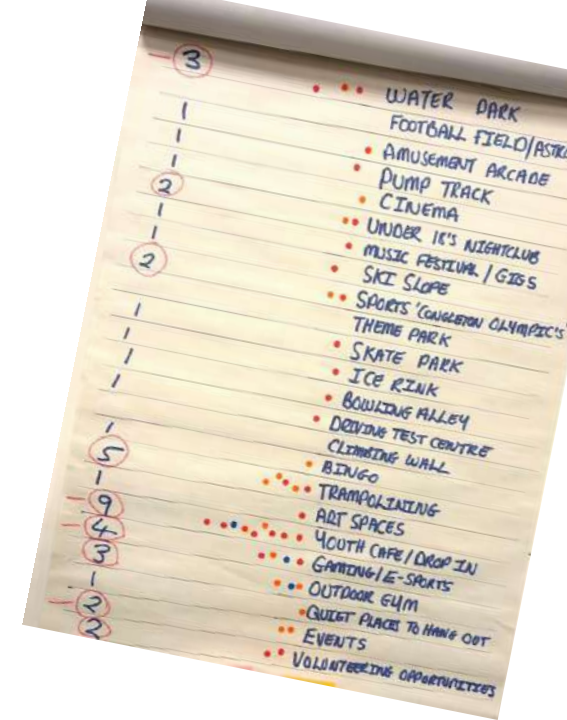 3 WATER PARK
FOOTBALL FIELD/ASTR
1 AMUSEMENT ARCADE
1 PUMP TRACK
1 CINEMA
2 UNDER 18'S NIGHTCLUB
1 MUSIC FESTIVAL / GIGS
1 SKI SLOPE
2 SPORTS 'CONGLETON OLYMPIC'S'
THEME PARK
1 SKATE PARK
1 ICE RINK
1 BOWLING ALLEY
1 DRIVING TEST CENTRE
CLIMBING WALL
1 BINGO
5 TRAMPOLINING
1 ART SPACES
9 YOUTH CAFE / DROP IN
4 GAMING / E-SPORTS
3 OUTDOOR GYM
1 QUIET PLACES TO HANG OUT
2 EVENTS
2 VOLUNTEERING OPPORTUNITIES